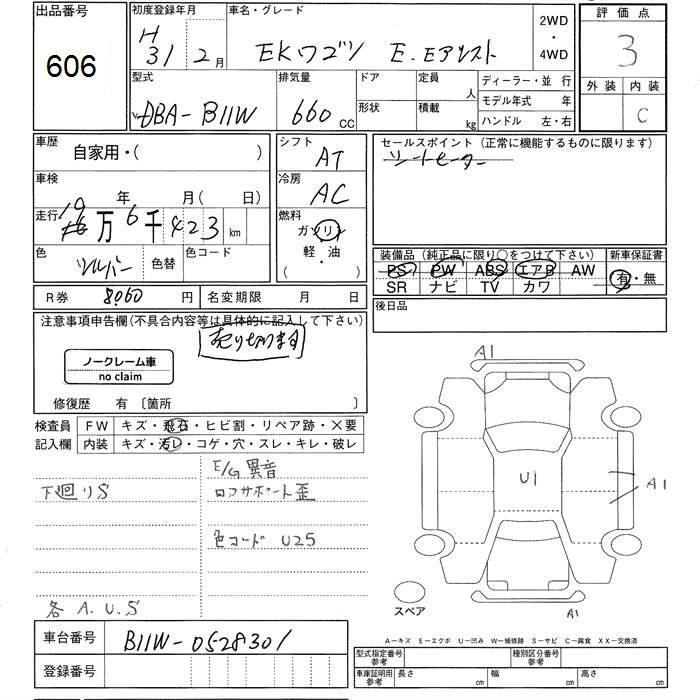 出品番号
606
初度登録年月
H31 2月
車名・グレード
EKワゴン E.Eアシスト
2WD
・
4WD
評価点
3
外装 内装
C
型式
DBA-B11W
排気量
660 CC
ドア
形状
定員
人
積載
kg
ディーラー・並 行
モデル年式 年
ハンドル 左・右
車歴
自家用・( )
車検
年 月( 日)
走行
19 万 6 千 423 km
色
シルバー
色替
色コード
シフト
AT
冷房
AC
燃料
ガソリン
軽・油
・
セールスポイント (正常に機能するものに限ります)
シートヒーター
装備品 (純正品に限り○をつけて下さい)
PS PW ABS エアB AW
SR ナビ TV カワ
新車保証書
有・無
R券 8060 円
名変期限 月 日
後日品
注意事項申告欄(不具合内容等は具体的に記入して下さい)
売り切ります
ノークレーム車
no claim
修復歴 有 〔箇所 〕
検査員
記入欄
FW キズ・飛石・ヒビ割・リペア跡・×要
内装 キズ・汚レ・コゲ・穴・スレ・キレ・破レ
E/G 異音
下廻りS
コアサポート歪
色コード U25
各 A.U.S
A1
U1
A1
A1
スペア
A-キズ E-エクボ U-凹み W-補修跡 S-サビ C-腐食 XX-交換済
車台番号
B11W-0528301
登録番号
型式指定番号
参考
種別区分番号
参考
車庫証明用
参考
長さ cm
幅 cm
高さ cm